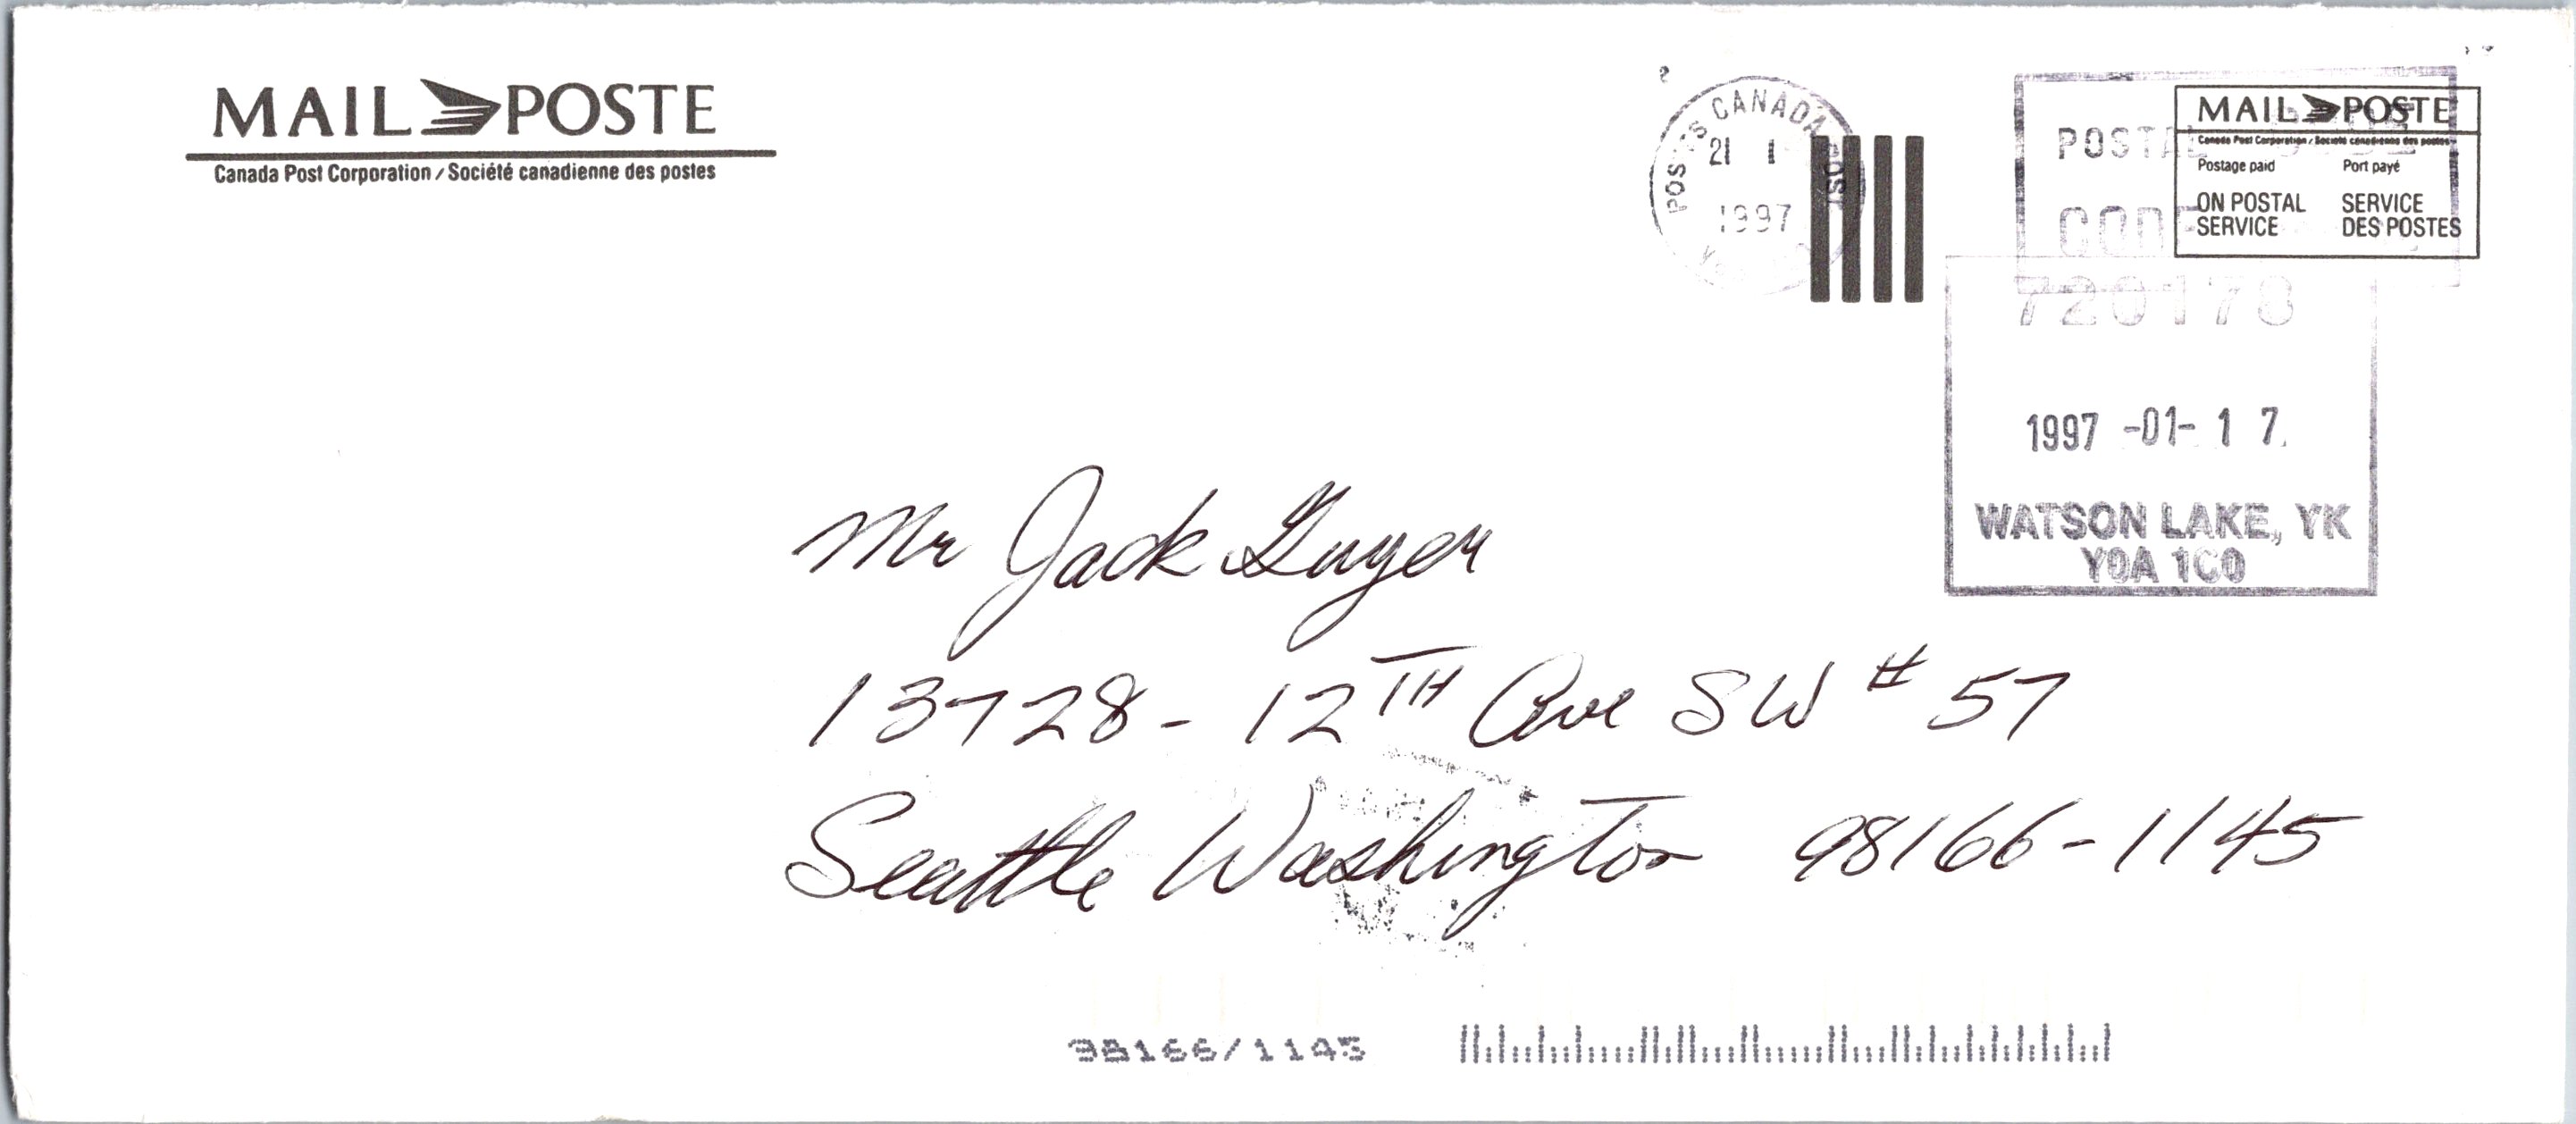 MAIL POSTE
Canada Post Corporation / Société canadienne des postes
POSTES CANADA POST
21 1
1997
POSTAL
CODE
720178
MAIL POSTE
Canada Post Corporation / Société canadienne des postes
Postage paid Port payé
ON POSTAL SERVICE
SERVICE DES POSTES
1997 -01- 17
WATSON LAKE, YK
Y0A 1C0
Mr Jack Guyer
13728 - 12TH Ave SW # 57
Seattle Washington 98166-1145
98166/1145